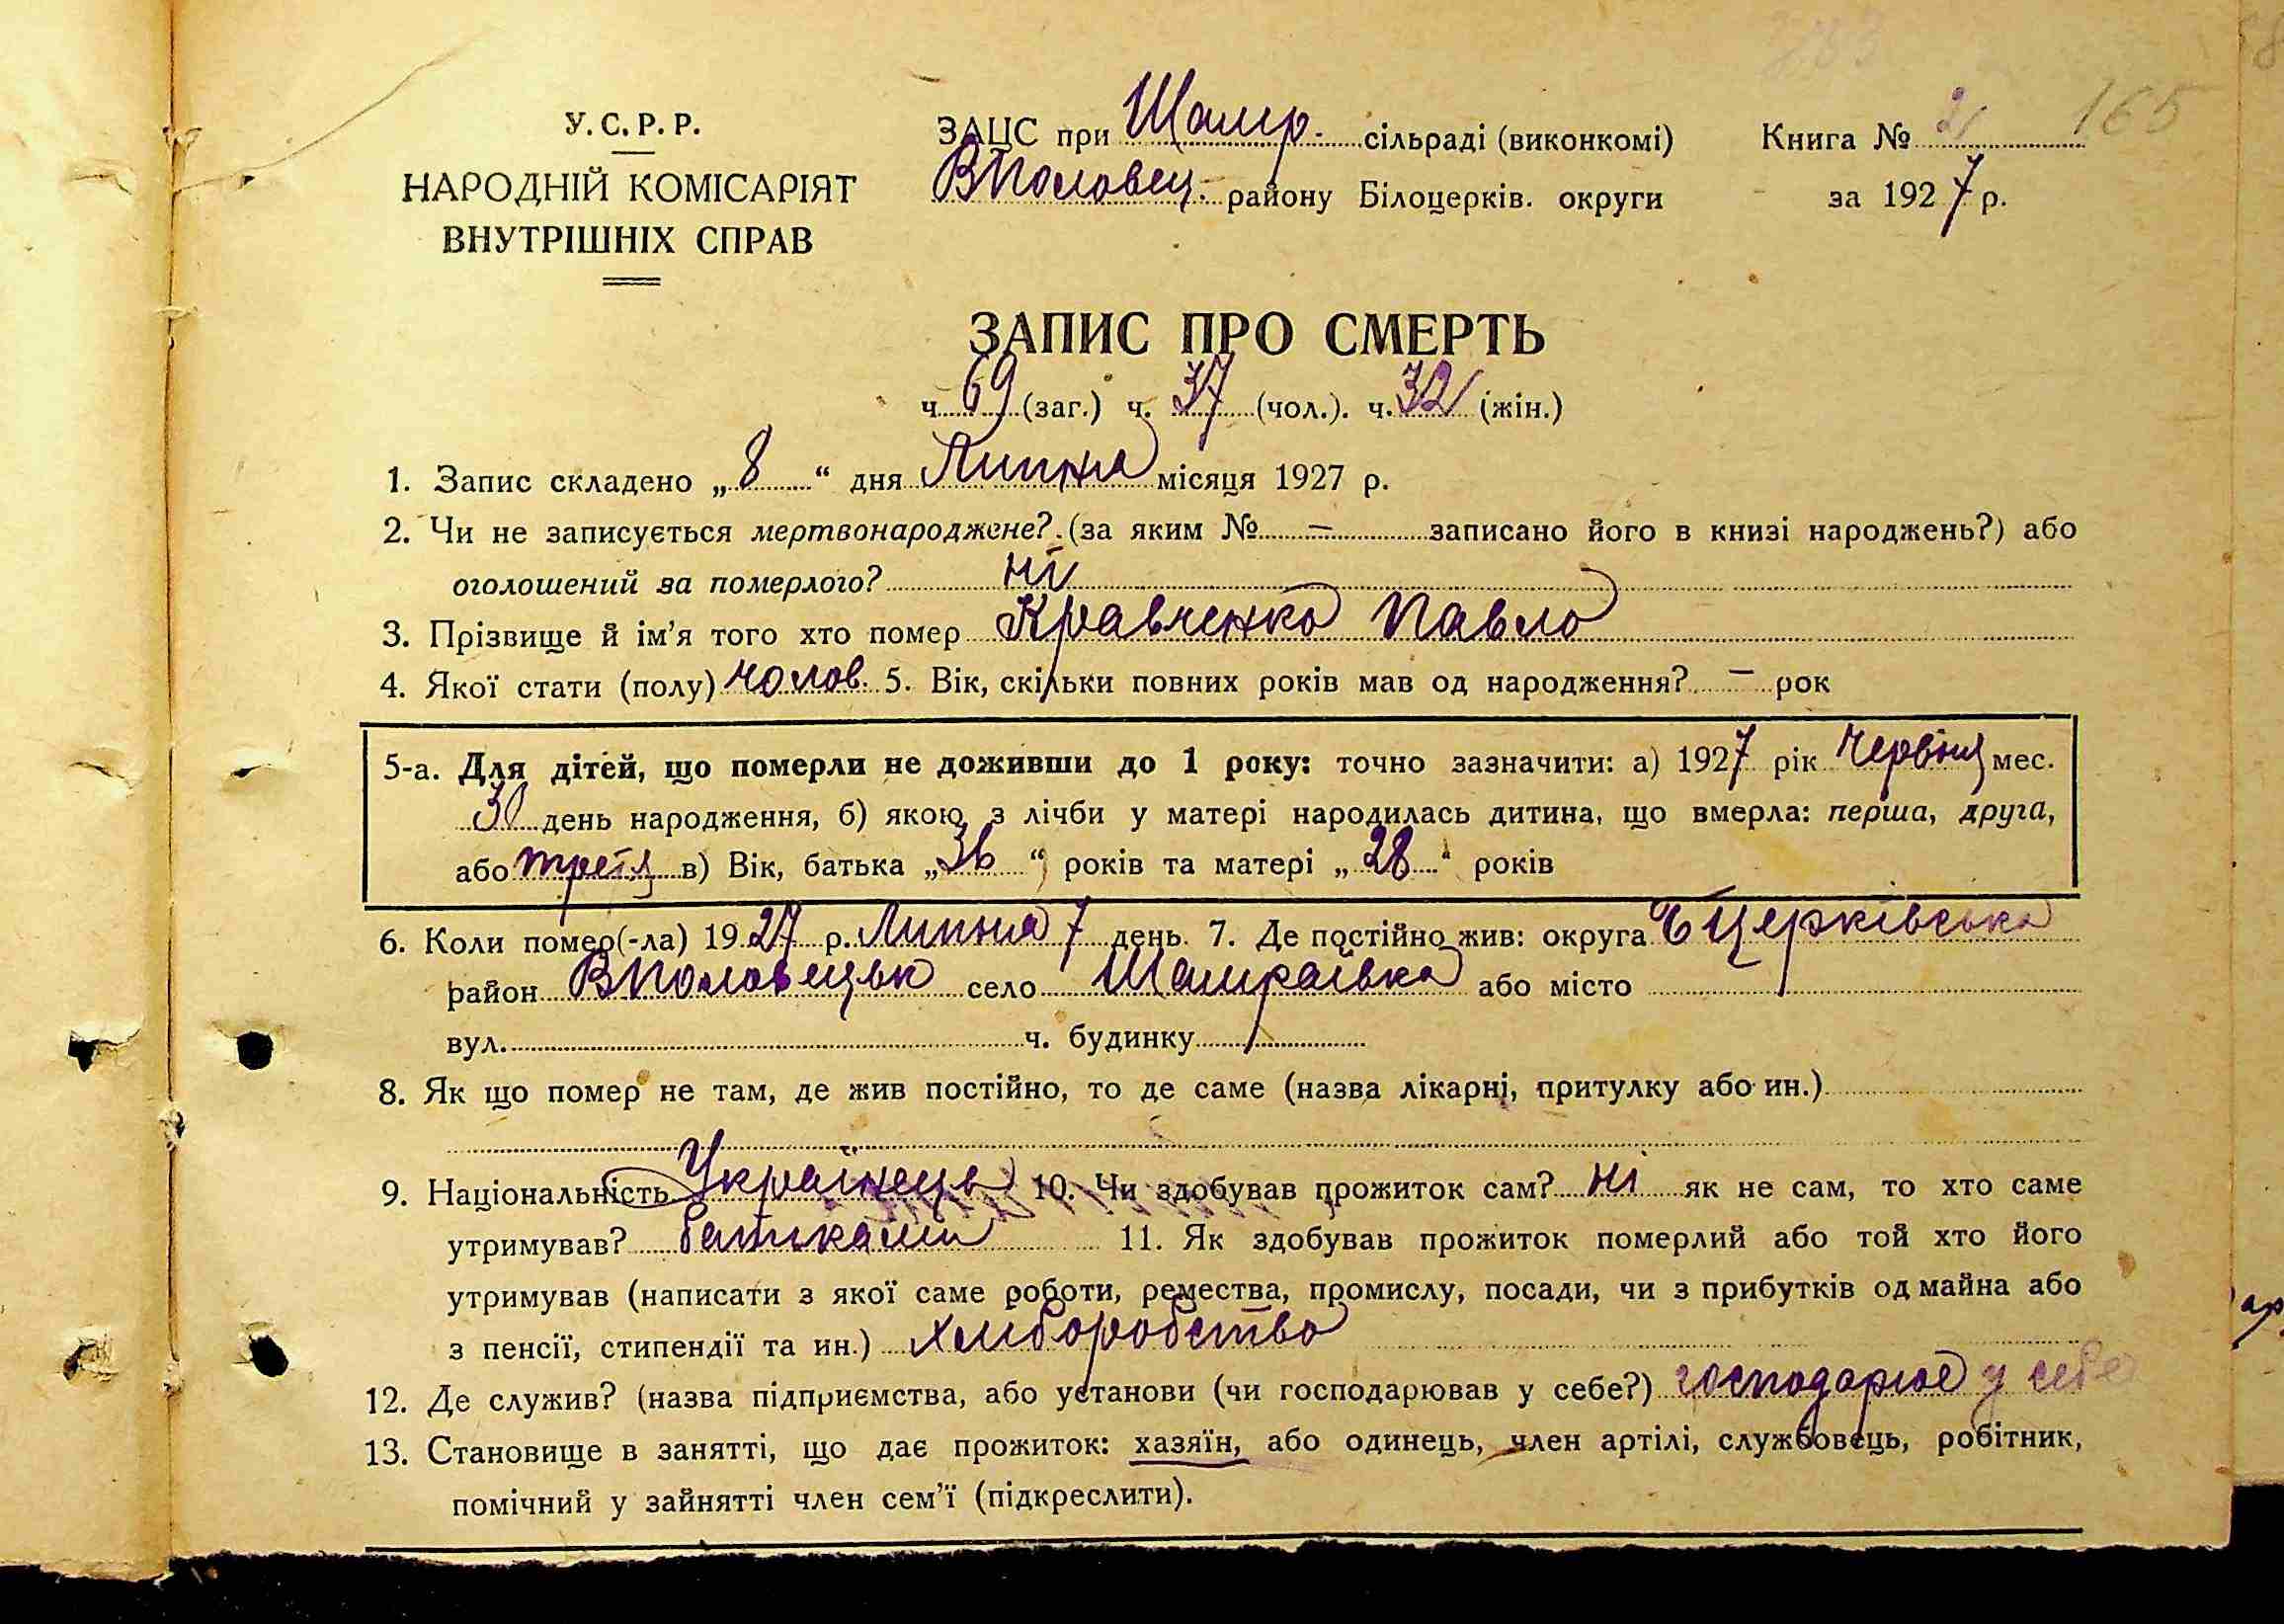 165
У. С. Р. Р.
НАРОДНІЙ КОМІСАРІЯТ
ВНУТРІШНІХ СПРАВ
ЗАЦС при Шамр. сільраді (виконкомі)
ВПоловец. району Білоцерків. округи
Книга № 2
за 1927 р.
ЗАПИС ПРО СМЕРТЬ
ч. 69 (заг.) ч. 37 (чол.). ч. 32 (жін.)
1. Запис складено „8“ дня Липня місяця 1927 р.
2. Чи не записується мертвонароджене? (за яким № – записано його в книзі народжень?) або
оголошений за померлого? ні
3. Прізвище й ім’я того хто помер Кравченко Павло
4. Якої стати (полу) чолов. 5. Вік, скільки повних років мав од народження? – рок
5-а. Для дітей, що померли не доживши до 1 року: точно зазначити: а) 1927 рік Червня мес.
30 день народження, б) якою з лічби у матері народилась дитина, що вмерла: перша, друга,
або третя в) Вік, батька „36“ років та матері „28“ років
6. Коли помер(-ла) 1927 р. Липня 7 день. 7. Де постійно жив: округа БЦерківська
район ВПоловецьк село Шамраївка або місто
вул. ч. будинку
8. Як що помер не там, де жив постійно, то де саме (назва лікарні, притулку або ин.)
9. Національність Українець 10. Чи здобував прожиток сам? ні як не сам, то хто саме
утримував? батьками 11. Як здобував прожиток померлий або той хто його
утримував (написати з якої саме роботи, ремества, промислу, посади, чи з прибутків од майна або
з пенсії, стипендії та ин.) хліборобство
12. Де служив? (назва підприємства, або установи (чи господарював у себе?) господарює у себе
13. Становище в занятті, що дає прожиток: хазяїн, або одинець, член артілі, службовець, робітник,
помічний у зайнятті член сем’ї (підкреслити).